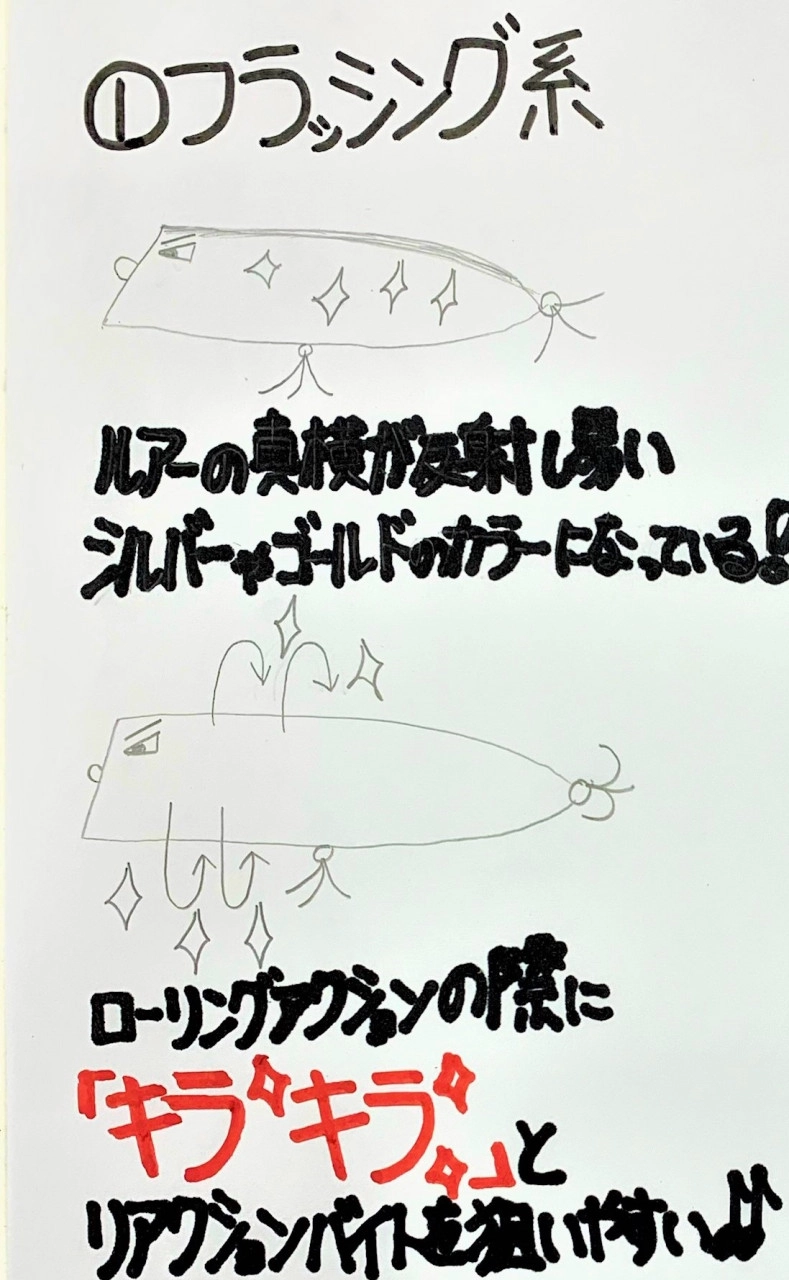 ①フラッシング系
ルアーの真横が反射し易い
シルバーやゴールドのカラーになっている!
ローリングアクションの際に
「キラキラ」と
リアクションバイトを狙いやすい♪